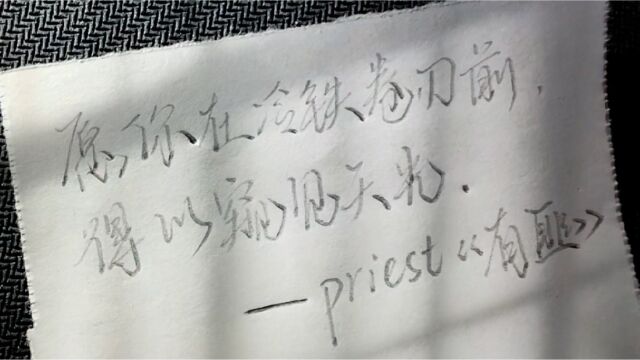 愿你在冷铁卷刃前,
得以窥见天光.
—priest《有匪》